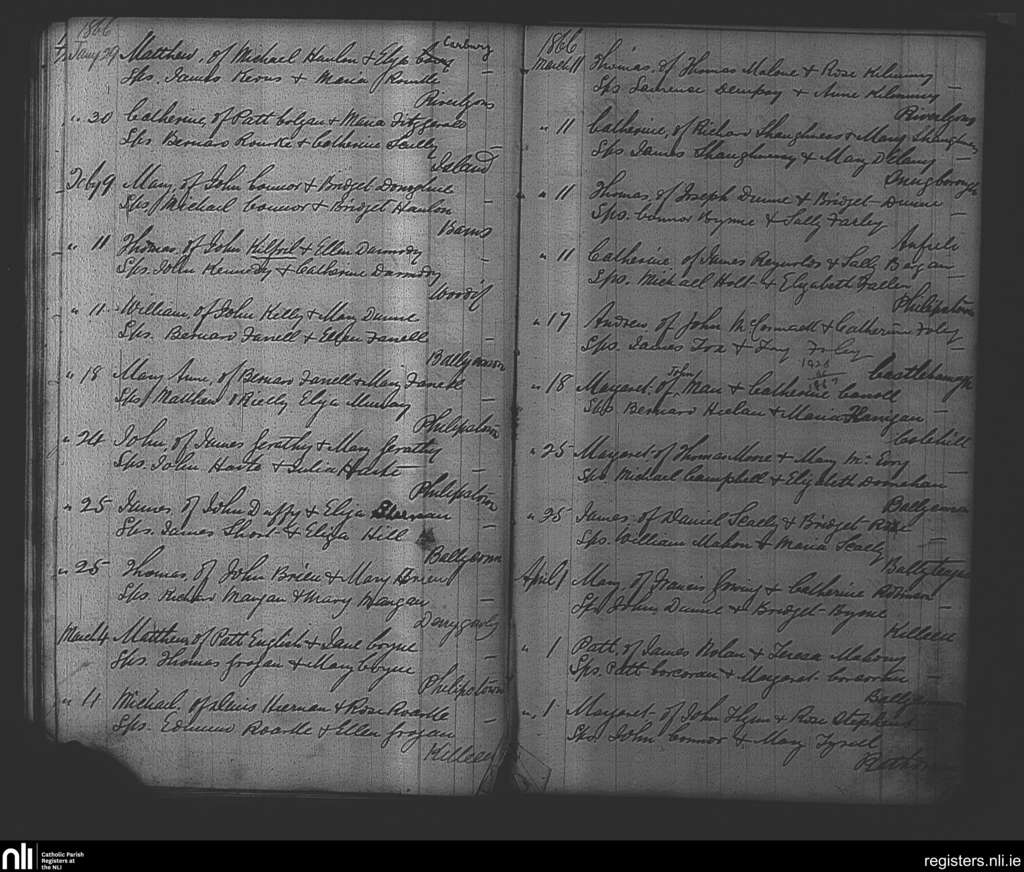 1866
Carbury
Jany 29 Matthew, of Michael Hanlon & Eliza
Sps. James & Maria
Riverlyons
" 30 Catherine, of Patt Colgan & Maria Fitzgerald
Sps. Bernard Rourke & Catherine Scally
Island
Feby 9 Mary, of John Connor & Bridget Donoghue
Sps. Michael Connor & Bridget Hanlon
Barns
" 11 Thomas, of John Kilfoil & Ellen Darmody
Sps. John Kennedy & Catherine Darmody
" 11 William, of John Kelly & Mary Dunne
Sps. Bernard Farrell & Ellen Farrell
" 18 Mary Anne, of Bernard Farrell & Mary Farrell
Sps. Matthew O'Rielly Eliza Murray
Philipstown
" 24 John, of James Gerathy & Mary Gerathy
Sps. John Harte & Julia Harte
Philipstown
" 25 James, of John Duffy & Eliza
Sps. James Short & Eliza Hill
" 25 Thomas, of John Brien & Mary Brien
Sps. Richard Mangan & Mary Mangan
March 4 Matthew, of Patt English & Jane Coyne
Sps. Thomas Grogan & Mary Coyne
Philipstown
" 11 Michael, of Denis Heernan & Rose Roarke
Sps. Edmund Roarke & Ellen Grogan
Killeen
1866
March 11 Thomas, of Thomas Malone & Rose Kilmurry
Sps Lawrence Dempsy & Anne Kilmurry
Riverlyons
" 11 Catherine, of Richard Shaughness & Mary
Sps. James Shaughnessy & Mary Delany
" 11 Thomas, of Joseph Dunne & Bridget Dunne
Sps. Connor Byrne & Sally Farley
" 11 Catherine of James Reynolds & Sally
Sps. Michael Holt & Elizabeth
Philipstown
" 17 Andrew of John McCormack & Catherine Foley
Sps. James Fox &
" 18 Margaret of John Man & Catherine Carroll
Sps. Bernard & Maria
Colehill
" 25 Margaret of Thomas Moore & Mary McEvoy
Sps. Michael Campbell & Elizabeth
" 25 James of Daniel Scally & Bridget
Sps. William Mahon & Maria Scally
April 1 Mary, of Francis & Catherine
Sps. John Dunne & Bridget Byrne
Killeen
" 1 Patt, of James Nolan & Teresa Mahony
Sps. Patt Corcoran & Margaret Corcoran
" 1 Margaret of John Flynn & Rose
Sps. John Connor & Mary Tyrell
nli Catholic Parish
Registers at
the NLI
registers.nli.ie